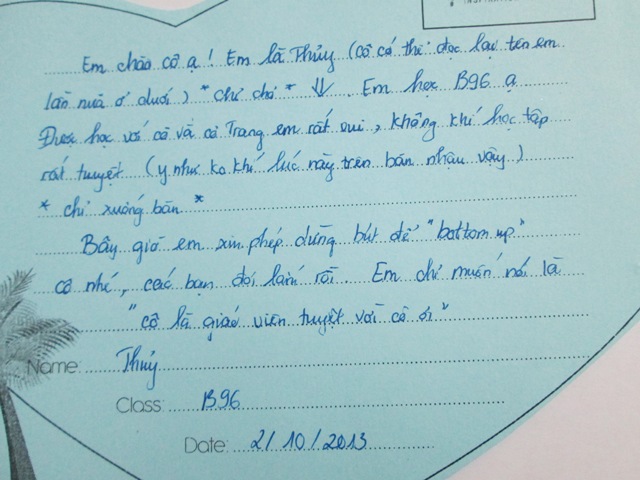 Em chào cô ạ! Em là Thủy (cô có thể đọc lại tên em
lần nữa ở dưới) *chỉ chỏ* ↓. Em học B96 ạ
Được học với cô và cô Trang em rất vui, không khí học tập
rất tuyệt (y như ko khí lúc này trên bàn nhậu vậy)
* chỉ xuống bàn *
Bây giờ em xin phép dừng bút để "bottom up"
cô nhé, các bạn đợi lâu rồi. Em chỉ muốn nói là
"cô là giáo viên tuyệt vời cô ơi"
Name: Thủy
Class: B96
Date: 2/10/2013